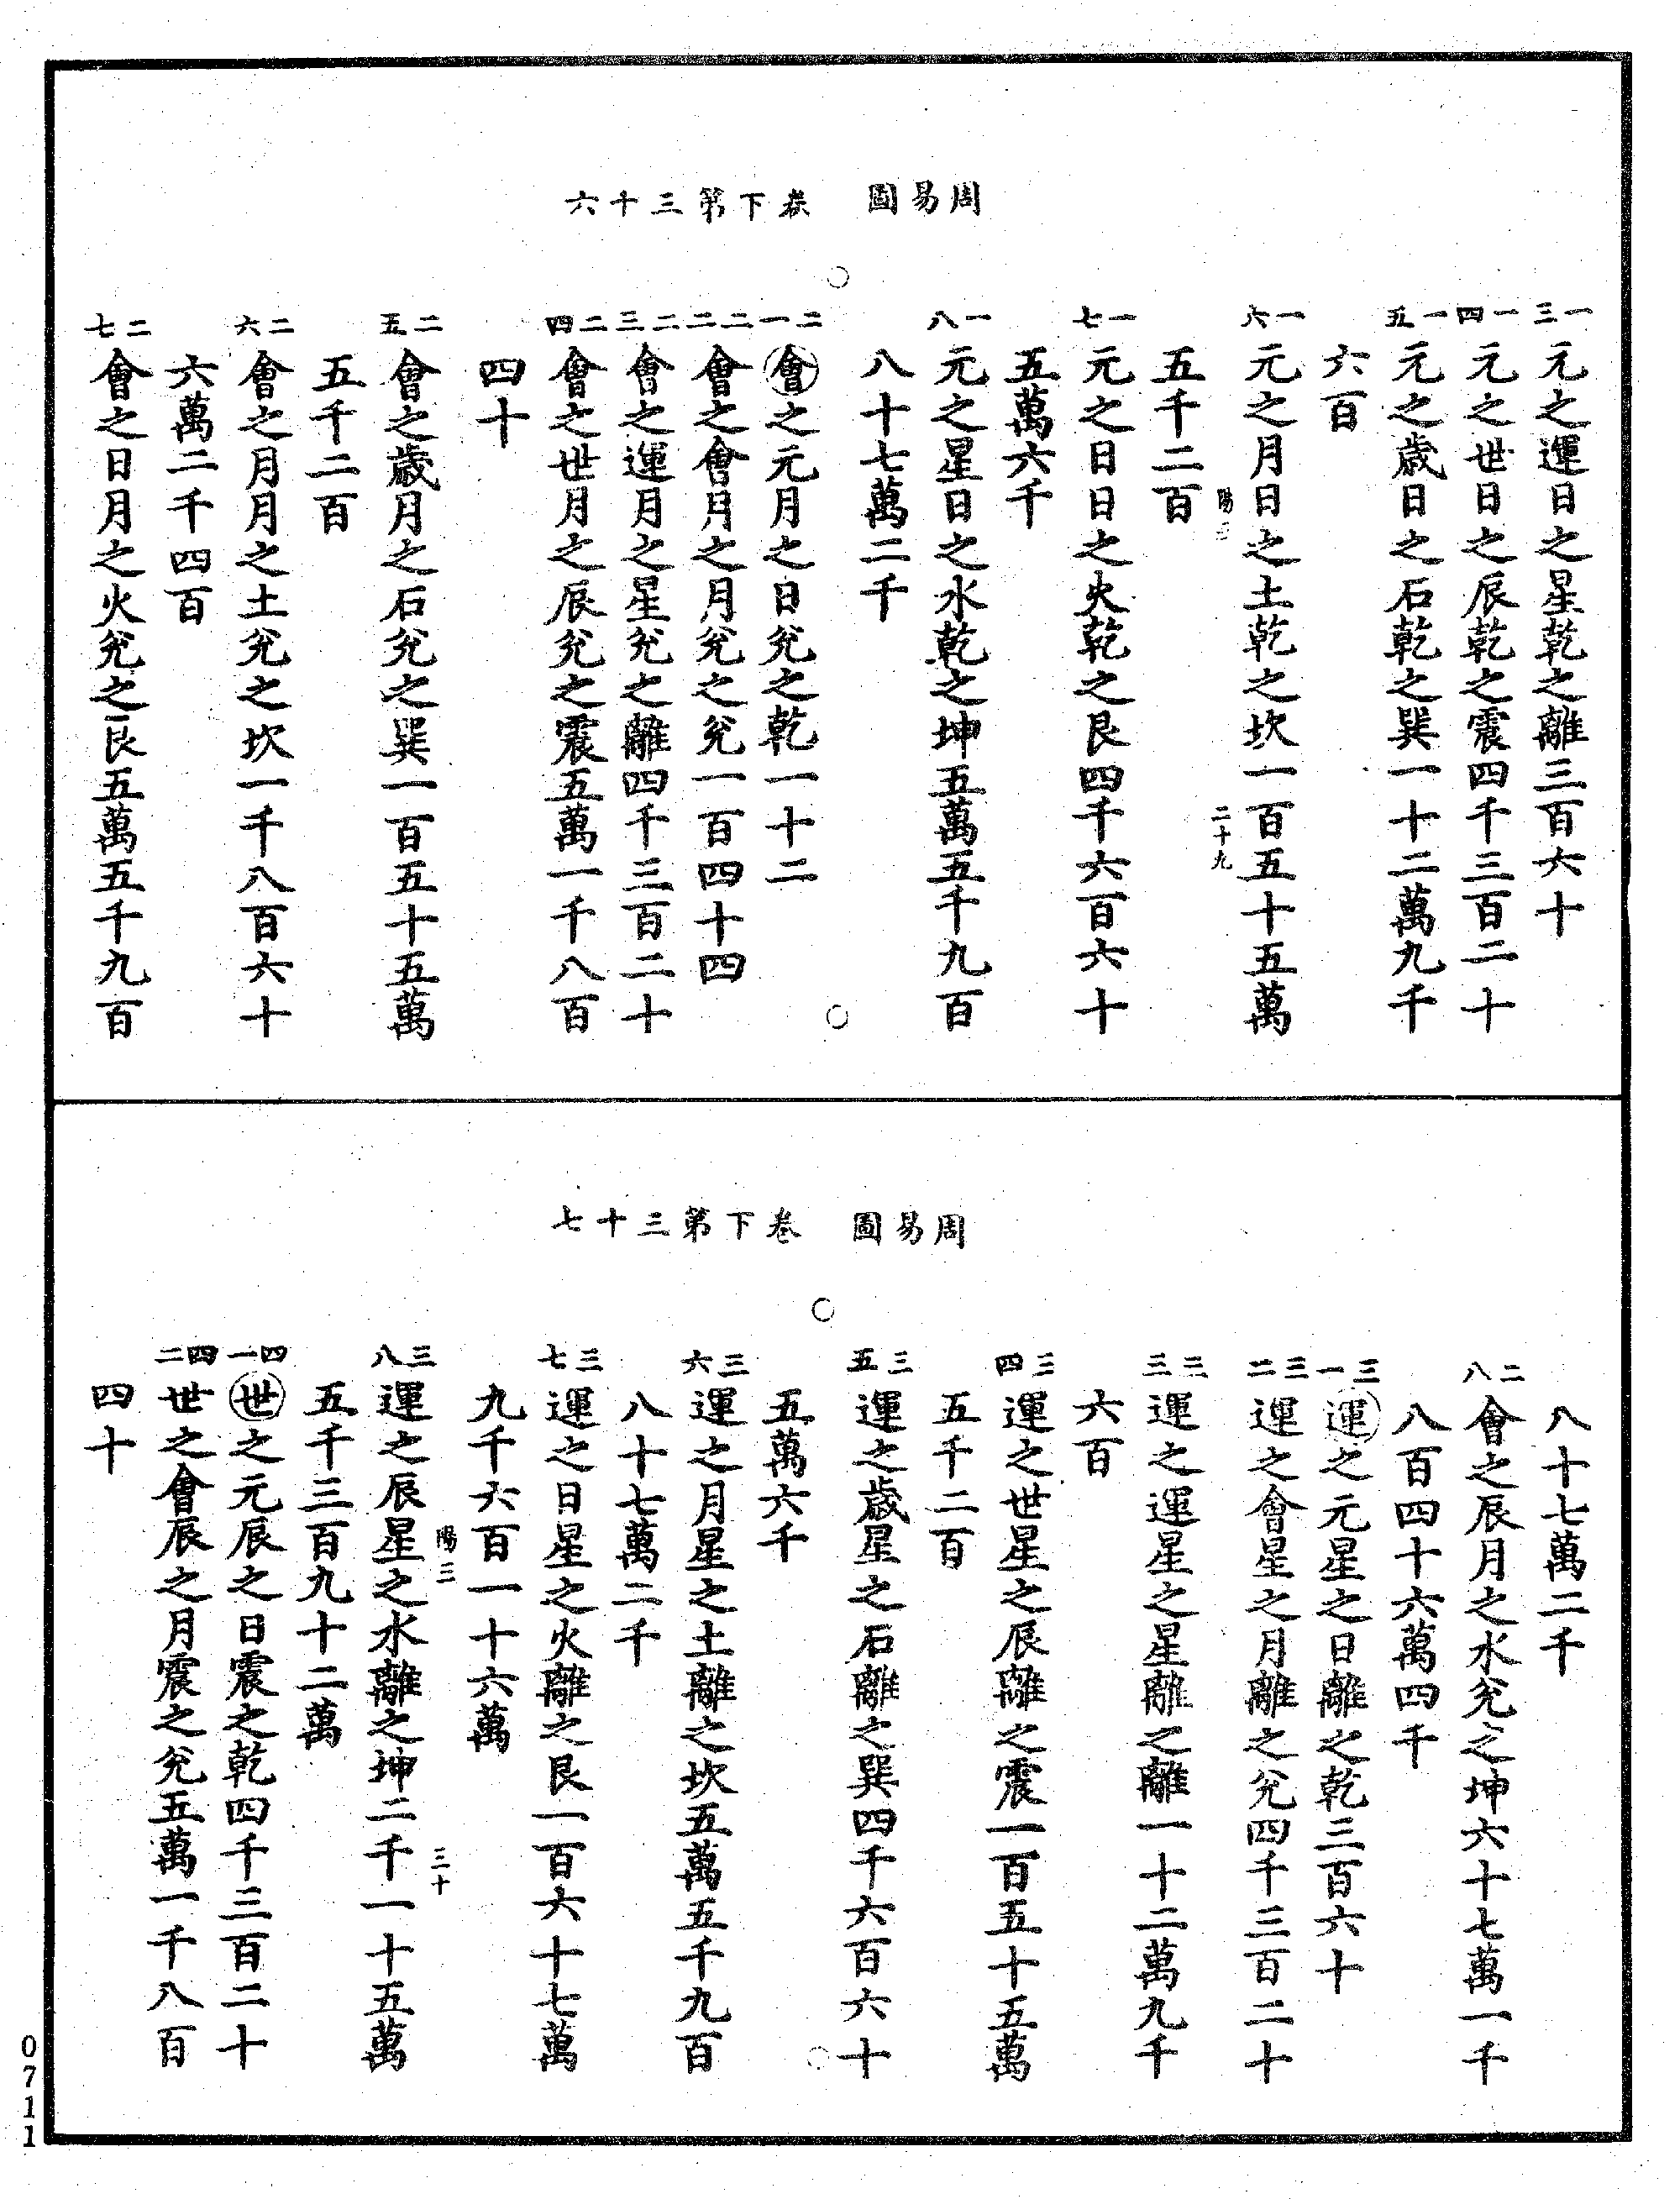 周易圖　卷下第三十六
一三
元之運日之星乾之離三百六十
一四
元之世日之辰乾之震四千三百二十
一五
元之歲日之石乾之巽一十二萬九千
六百
一六
元之月日之土乾之坎一百五十五萬
陽三　二十九
五千二百
一七
元之日日之火乾之艮四千六百六十
五萬六千
一八
元之星日之水乾之坤五萬五千九百
八十七萬二千
二一
會之元月之日兊之乾一十二
二二
會之會月之月兊之兊一百四十四
二三
會之運月之星兊之離四千三百二十
二四
會之世月之辰兊之震五萬一千八百
四十
二五
會之歲月之石兊之巽一百五十五萬
五千二百
二六
會之月月之土兊之坎一千八百六十
六萬二千四百
二七
會之日月之火兊之艮五萬五千九百
周易圖　卷下第三十七
八十七萬二千
二八
會之辰月之水兊之坤六十七萬一千
八百四十六萬四千
三一
運之元星之日離之乾三百六十
三二
運之會星之月離之兊四千三百二十
三三
運之運星之星離之離一十二萬九千
六百
三四
運之世星之辰離之震一百五十五萬
五千二百
三五
運之歲星之石離之巽四千六百六十
五萬六千
三六
運之月星之土離之坎五萬五千九百
八十七萬二千
三七
運之日星之火離之艮一百六十七萬
九千六百一十六萬
陽三　三十
三八
運之辰星之水離之坤二千一十五萬
五千三百九十二萬
四一
世之元辰之日震之乾四千三百二十
四二
世之會辰之月震之兊五萬一千八百
四十
0711